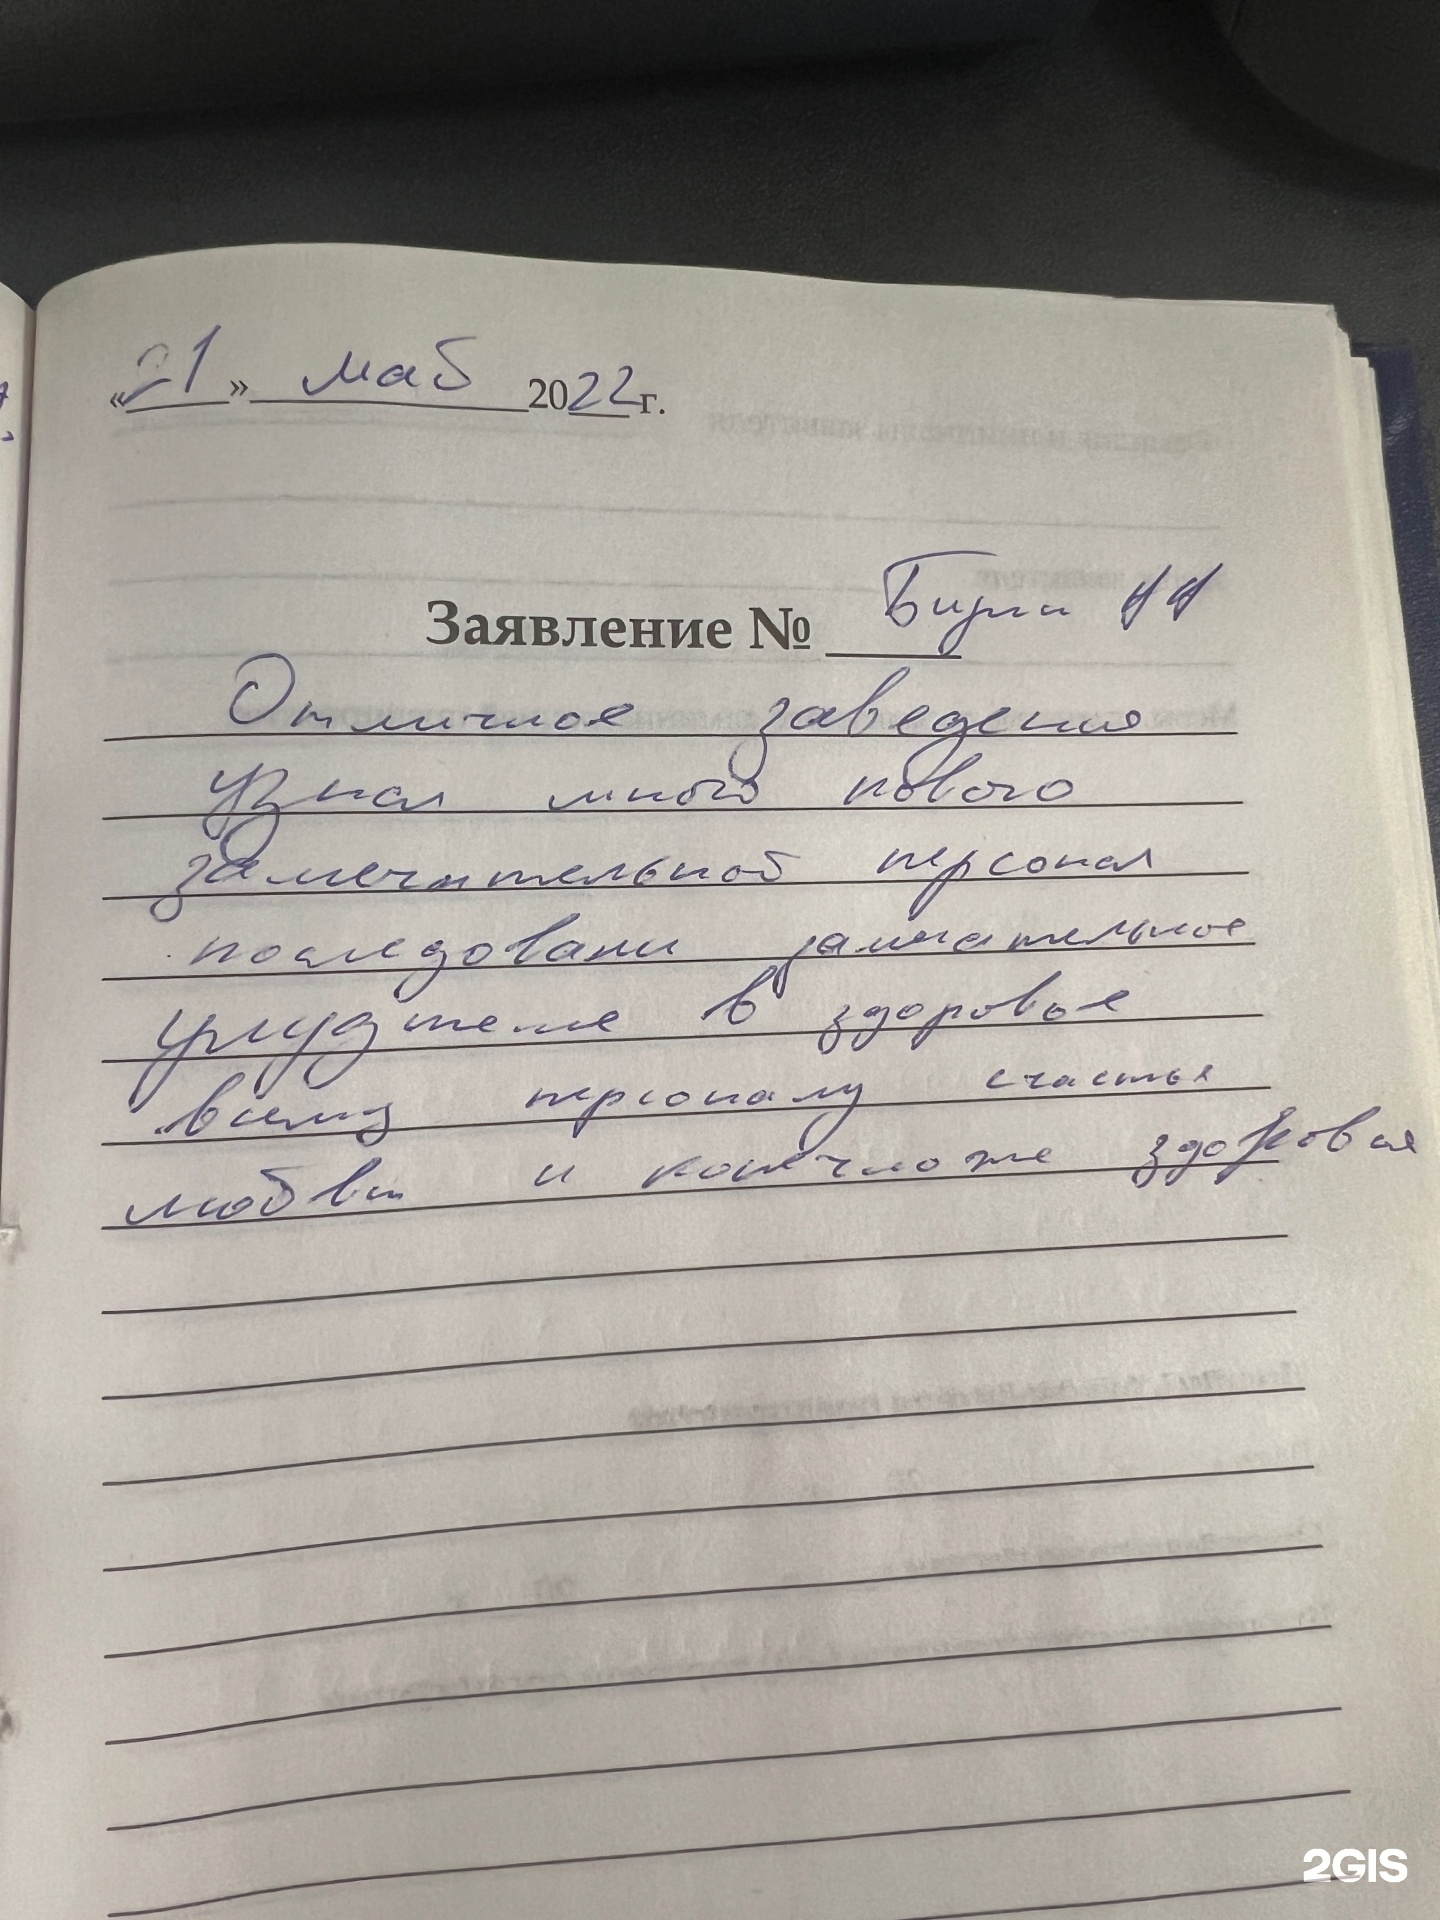 «21» май 2022 г.
Заявление №
Отличное заведения
узнал много нового
замечательной персонал
последовани замечательное
улудшеме в здоровье
всему персоналу счастья
любви и конечноже здоровья
2GIS